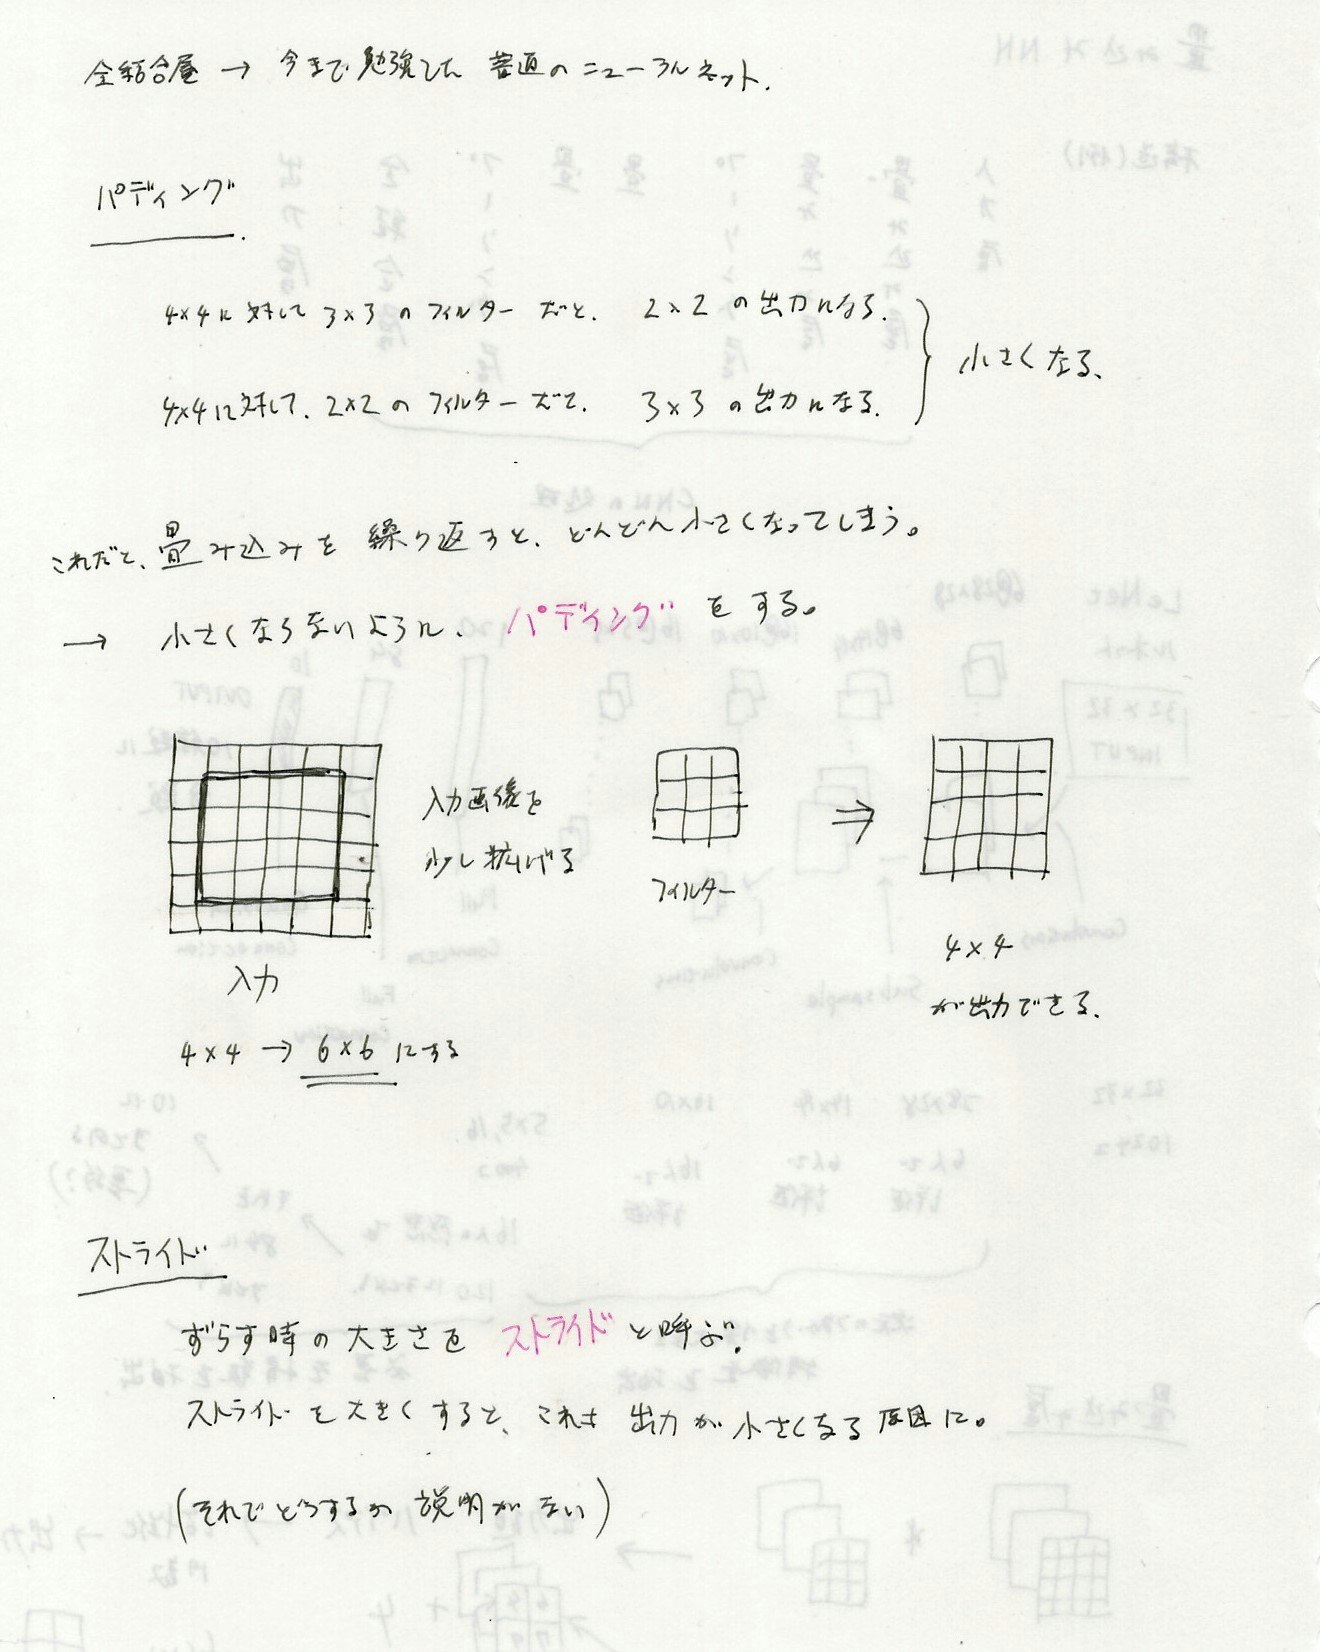 全結合層 → 今まで勉強した 普通のニューラルネット.
パディング
4×4に対して 3×3のフィルターだと、 2×2の出力になる.
4×4に対して、2×2のフィルターだと、 3×3の出力になる.
小さくなる、
これだと、畳み込みを繰り返すと、どんどん小さくなってしまう。
→ 小さくならないように、パディングをする。
入力画像を
少し拡げる
フィルター
⇒
入力
4×4 → 6×6にする
4×4
が出力できる.
ストライド
ずらす時の大きさをストライドと呼ぶ.
ストライドを大きくすると、これも出力が小さくなる原因に。
(それでどうするの説明がない)